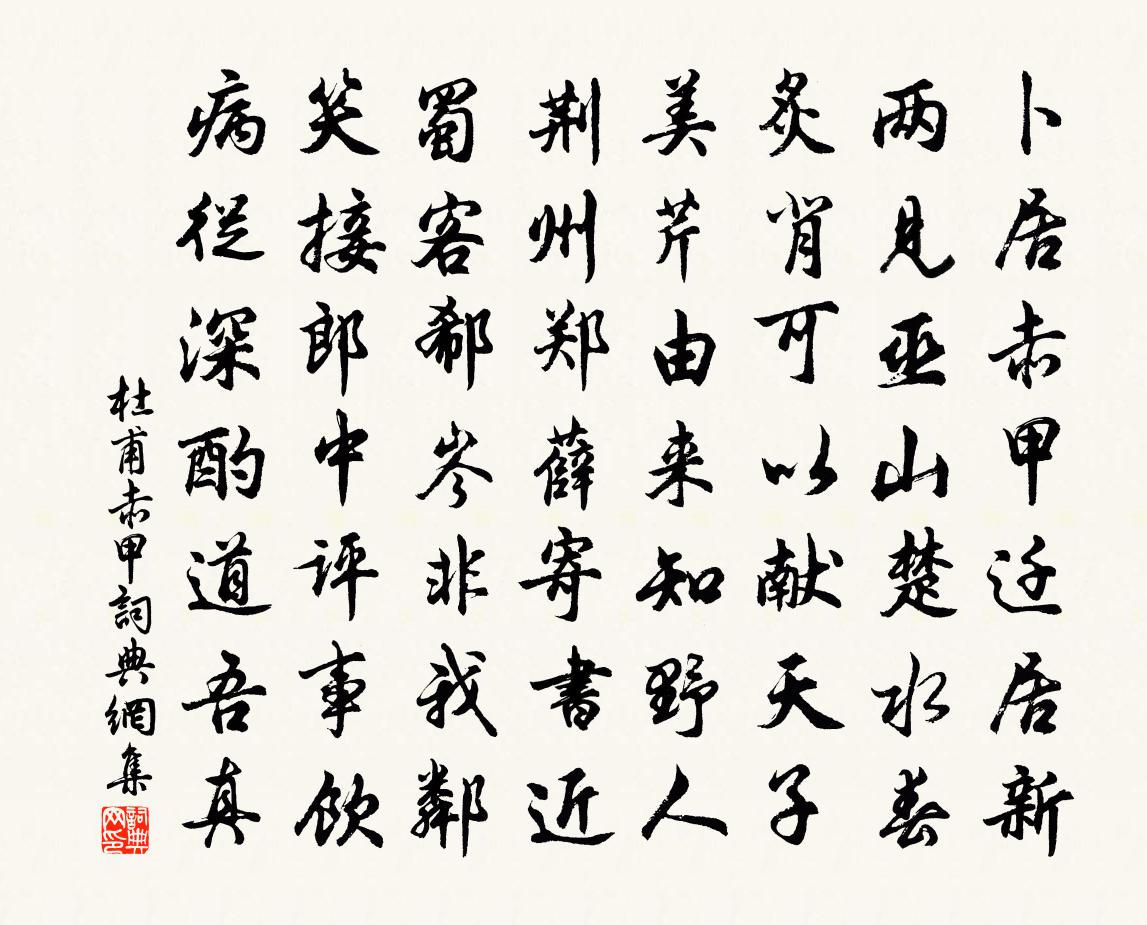 卜居赤甲迁居新
两见巫山楚水春
炙背可以献天子
美芹由来知野人
荆州郑薛寄書近
蜀客郗岑非我鄰
笑接郎中评事饮
病従深酌道吾真
杜甫赤甲詞典網集
詞典网印